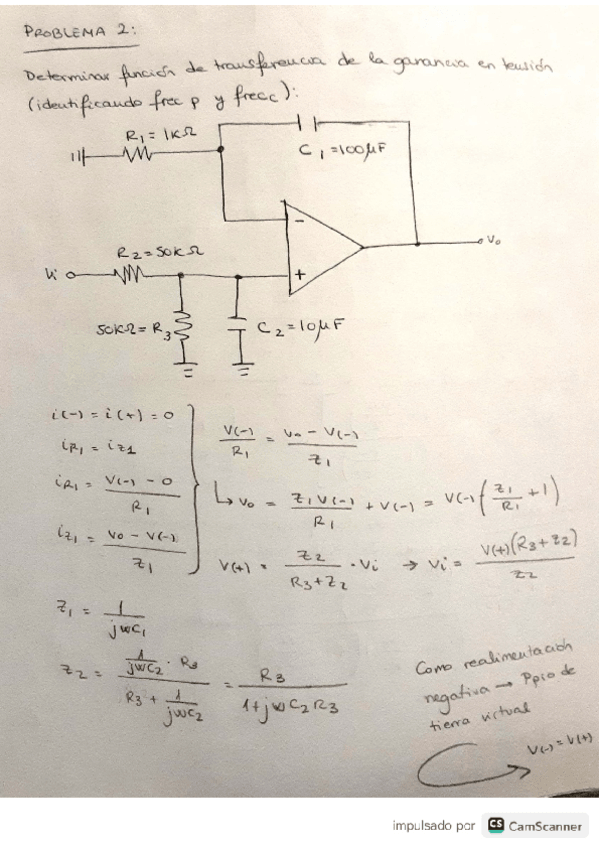 PROBLEMA 2:
Determinar función de transferencia de la ganancia en tensión
(identificando frec p y frec c):
R1 = 1KΩ
C1 = 100μF
-
Vo
R2 = 50KΩ
Vi
+
50KΩ = R3
C2 = 10μF
i(-) = i(+) = 0
iR1 = iZ1
iR1 = V(-) - 0 / R1
iZ1 = Vo - V(-) / Z1
V(-) / R1 = Vo - V(-) / Z1
↳ Vo = Z1 V(-) / R1 + V(-) = V(-) (Z1 / R1 + 1)
V(+) = Z2 / R3 + Z2 · Vi → Vi = V(+)(R3 + Z2) / Z2
Z1 = 1 / jωC1
Z2 = 1/jωC2 · R3 / R3 + 1/jωC2 = R3 / 1+jωC2R3
Como realimentación
negativa → Ppio de
tierra virtual
V(-) = V(+)
impulsado por CS CamScanner